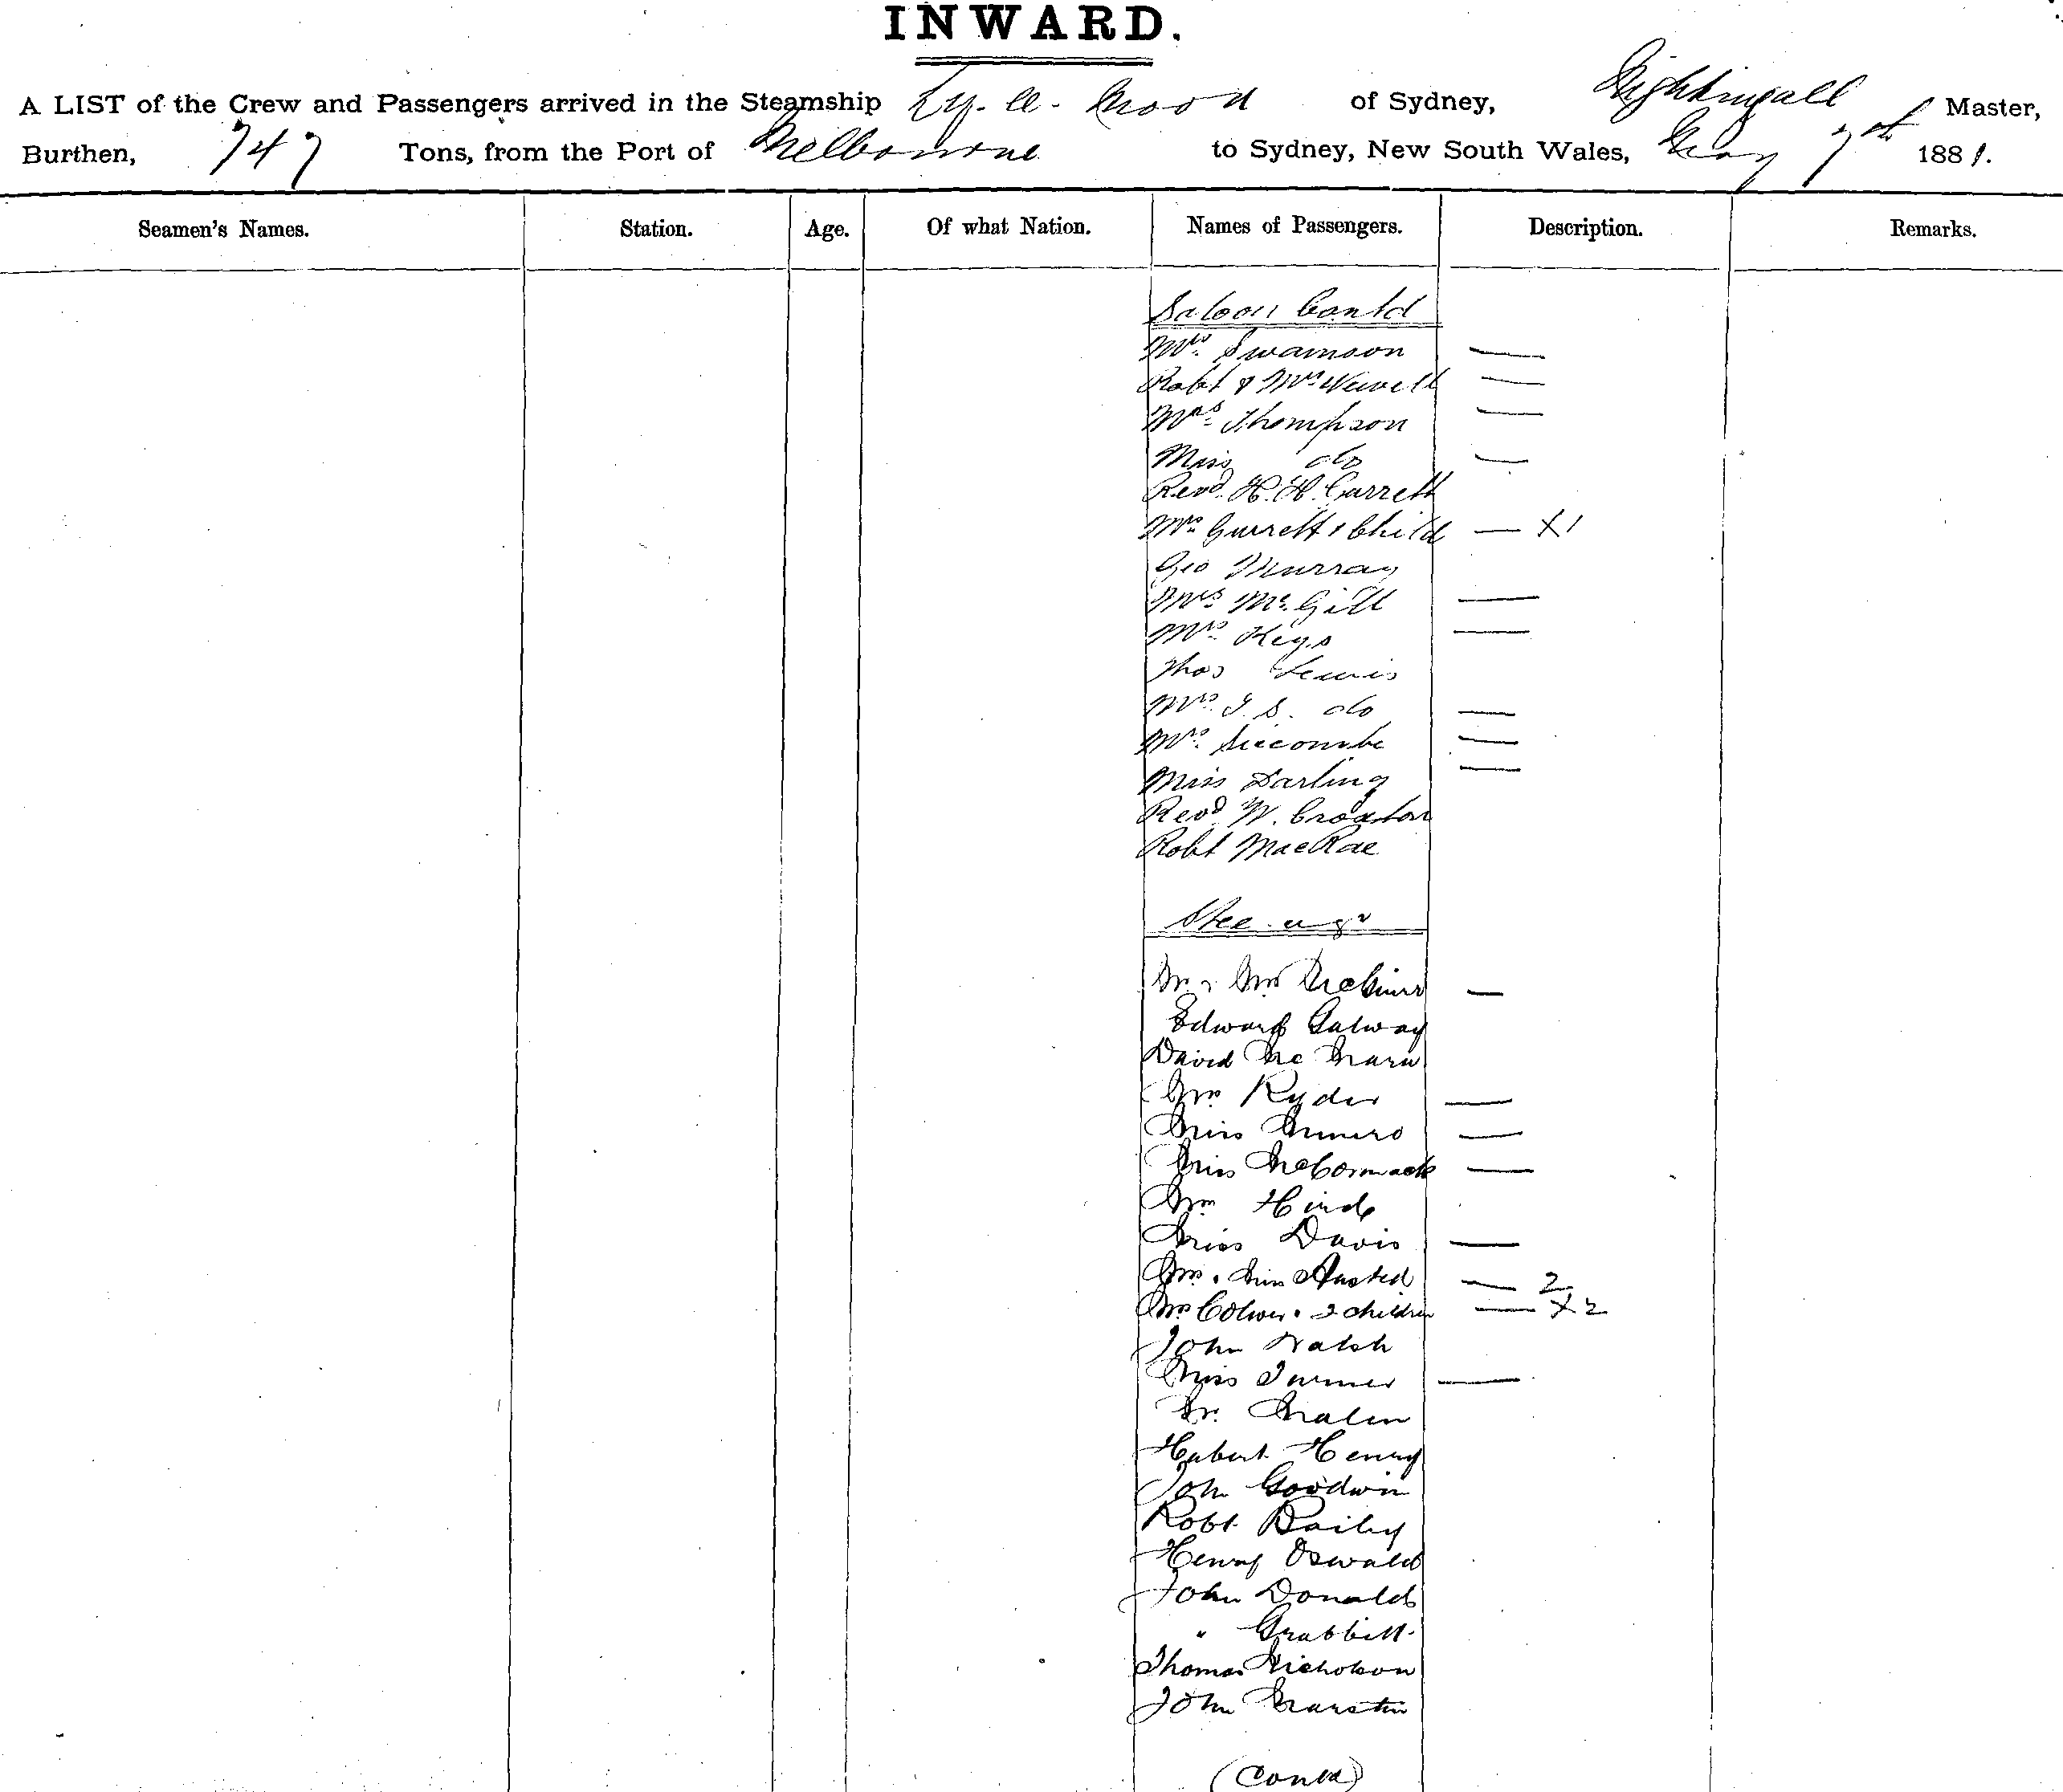 INWARD.
A LIST of the Crew and Passengers arrived in the Steamship Ly. a. Moon of Sydney, Nightingall Master,
Burthen, 747 Tons, from the Port of Melbourne to Sydney, New South Wales, May 7th 1881.
Seamen's Names. Station. Age. Of what Nation. Names of Passengers. Description. Remarks.
Saloon Contd
Mrs. Swainson —
Robt & Mrs —
Mrs. Thompson —
Miss do —
Revd. H. H. Garrett
Mrs Garrett & Child — X1
Geo Murray
Mrs McGill —
Mrs. Keys —
Thos Lewis
Mrs. T. S. do —
Mrs. —
Miss Darling —
Revd W. Croxton
Robt MacRae
Steerage
Mr & Mrs —
Edward Galway
David Mc Mara
Ryder —
Miss Munero —
Miss McCormack —
Hinds
Miss Davis —
Miss Husted — 2
Mrs & 2 children — X2
John Walsh
Miss Turner —
Mr.
Hubert Henry
John Goodwin
Robt. Bailey
Henry Oswald
John Donald
" Grabbitt.
Thomas Nicholson
John Marstin
(Contd)